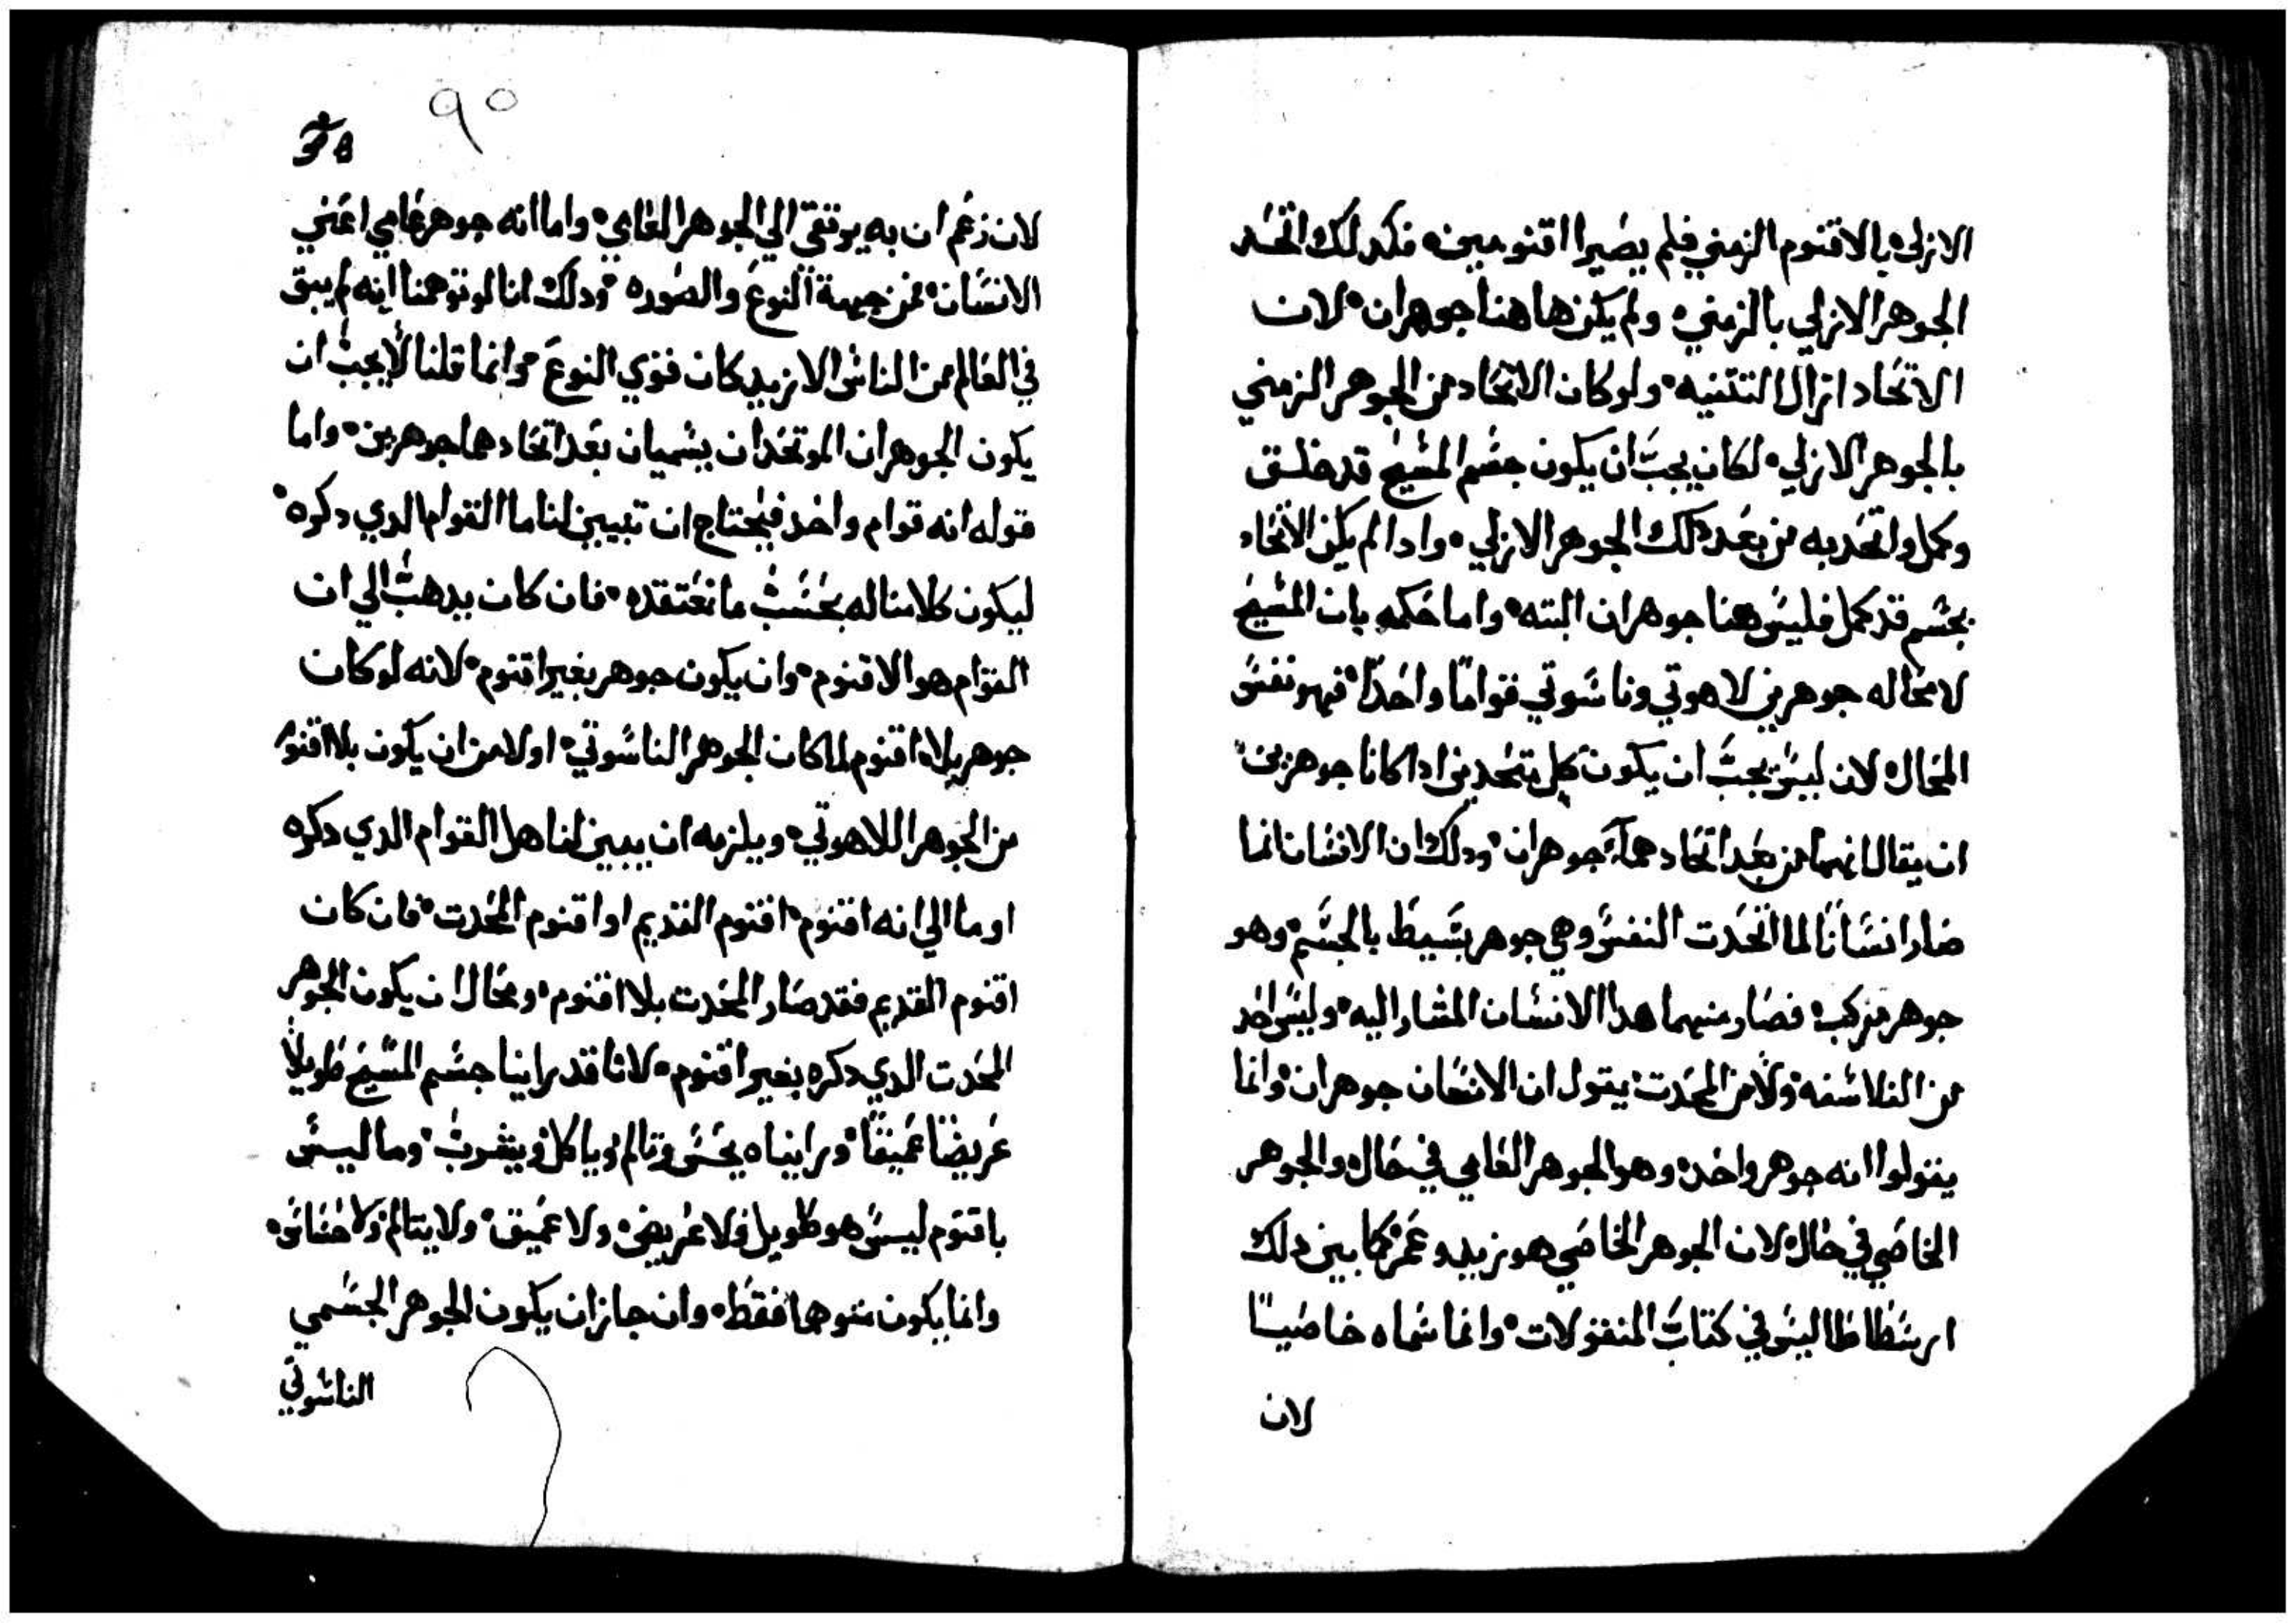 الازلي بالاقنوم الزمني فلم يصيرا اقنومين، فكدلك اتحد
الجوهر الازلي بالزمني، ولم يكن هاهنا جوهران، لان
الاتحاد ازال التتنيه، ولو كان الاتحاد من الجوهر الزمني
بالجوهر الازلي، لكان يجب ان يكون جسم المسيح قد خلق
وكمل واتحد به من بعد دلك الجوهر الازلي، وادا لم يكن الاتحاد
بجسم قد كمل فليس هنا جوهران البته، واما حكمه بان المسيح
لا محاله جوهرين لاهوتي وناسوتي قواما واحدا، فهو نفس
المحال، لان ليس يجب ان يكون كل متحدين ادا كانا جوهرين
ان يقال انهما من بعد اتحادهما جوهران، ودلك ان الانسان انما
صار انسانا لما اتحدت النفس وهي جوهر بسيط بالجسم، وهو
جوهر مركب، فصار منهما هدا الانسان المشار اليه، وليس احد
من الفلاسفه ولا من المحدت يقول ان الانسان جوهران، وانما
يقولوا انه جوهر واحد، وهو الجوهر العامي في حال، والجوهر
الخاصي في حال، لان الجوهر الخاصي هو زيد وعمر، كما بين دلك
ارسطاطاليس في كتاب المنقولات، وانما سماه خاصيا
لان
٩٥
38
لان زعم ان به يرتقى الي الجوهر العامي، واما انه جوهر عامي اعني
الانسان، فمن جهة النوع والصوره، ودلك انا لو توهمنا انه لم يبق
في العالم من الناس الا زيد كان فوي النوع، وانما قلنا لا يجب ان
يكون الجوهران الموتحدان يسميان بعد اتحادهما جوهرين، واما
قوله انه قوام واحد فيحتاج ان تبيين لنا ما القوام الدي دكره،
ليكون كلامنا له بحسب ما نعتقده، فان كان يدهب الي ان
القوام هو الاقنوم، وان يكون جوهر بغير اقنوم، لانه لو كان
جوهر بلا اقنوم لما كان الجوهر الناسوتي، اولا من ان يكون بلا اقنوم
من الجوهر اللاهوتي، ويلزمه ان يبين لنا هل القوام الدي دكره
اوما الي انه اقنوم، اقنوم القديم او اقنوم المحدت، فان كان
اقنوم القديم فقد صار المحدت بلا اقنوم، ومحال ان يكون الجوهر
المحدت الدي دكره بغير اقنوم، لانا قد راينا جسم المسيح طويلا
عريضا عميقا، وراينا ه يحس وتالم وياكل ويشرب، وما ليس
باقنوم ليس هو طويل ولا عريض، ولا عميق، ولا يتالم ولا حساس،
وانما يكون متوهما فقط، وان جاز ان يكون الجوهر الجسمي
الناسوتي